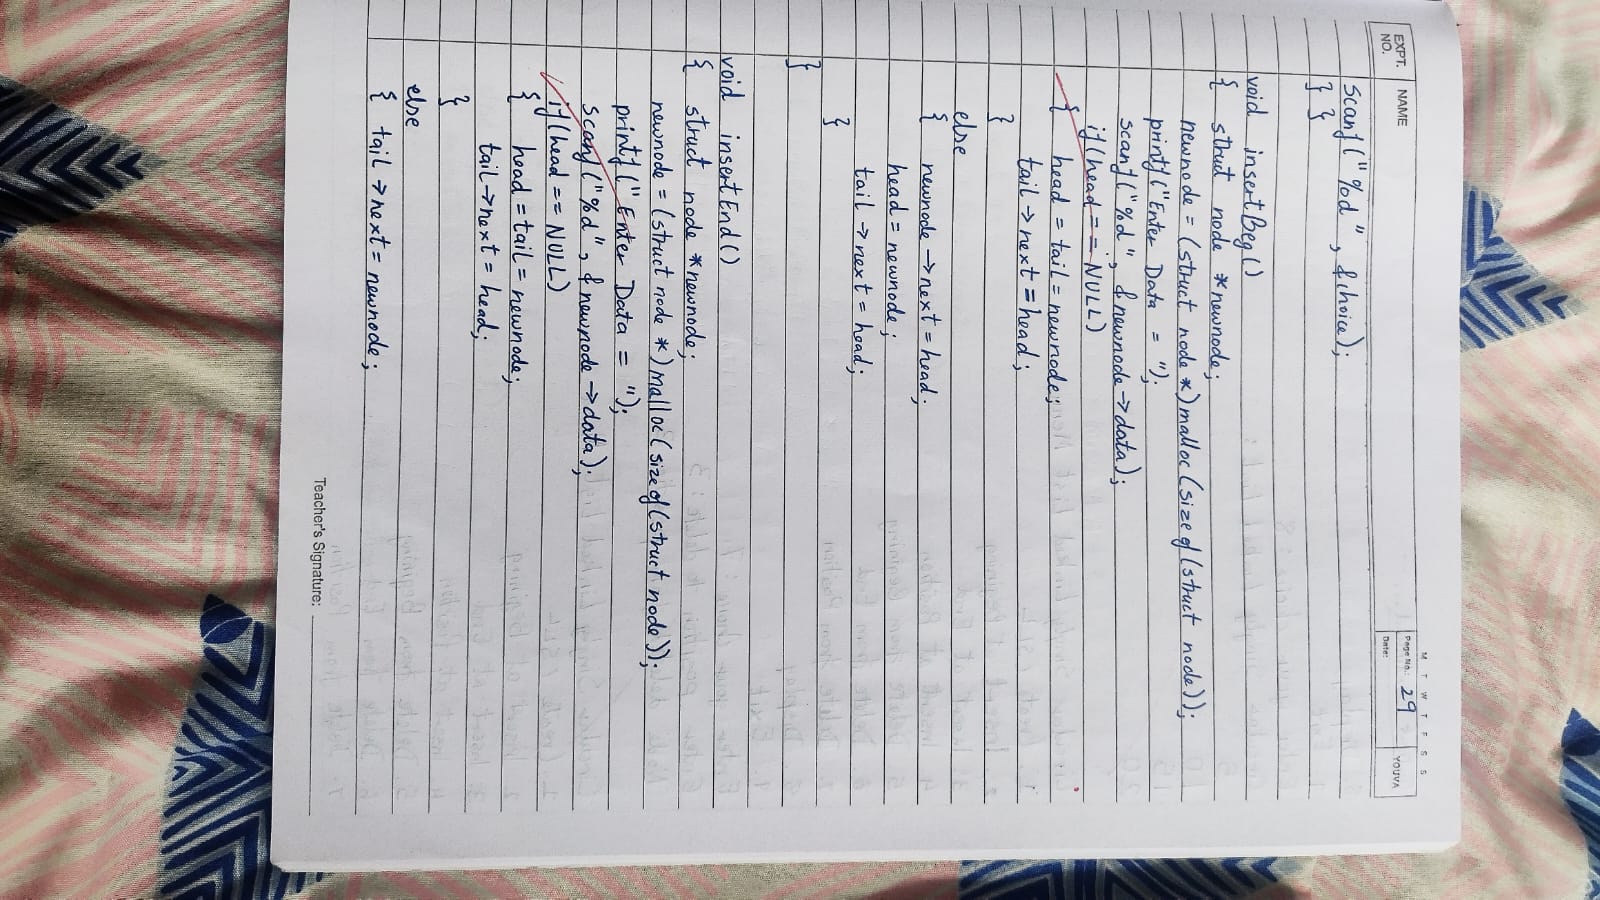 M T W T F S S
EXPT. NO. NAME Page No.: 29 YOUVA
Date:
scanf("%d", &choice);
} }
void insertBeg()
{ struct node *newnode;
newnode = (struct node *)malloc(sizeof(struct node));
printf("Enter Data = ");
scanf("%d", &newnode->data);
if(head == NULL)
{ head = tail = newnode;
tail -> next = head;
}
else
{ newnode -> next = head;
head = newnode;
tail -> next = head;
}
}
void insertEnd()
{ struct node *newnode;
newnode = (struct node *)malloc(sizeof(struct node));
printf("Enter Data = ");
scanf("%d", &newnode->data);
if(head == NULL)
{ head = tail = newnode;
tail->next = head;
}
else
{ tail ->next = newnode;
Teacher's Signature: